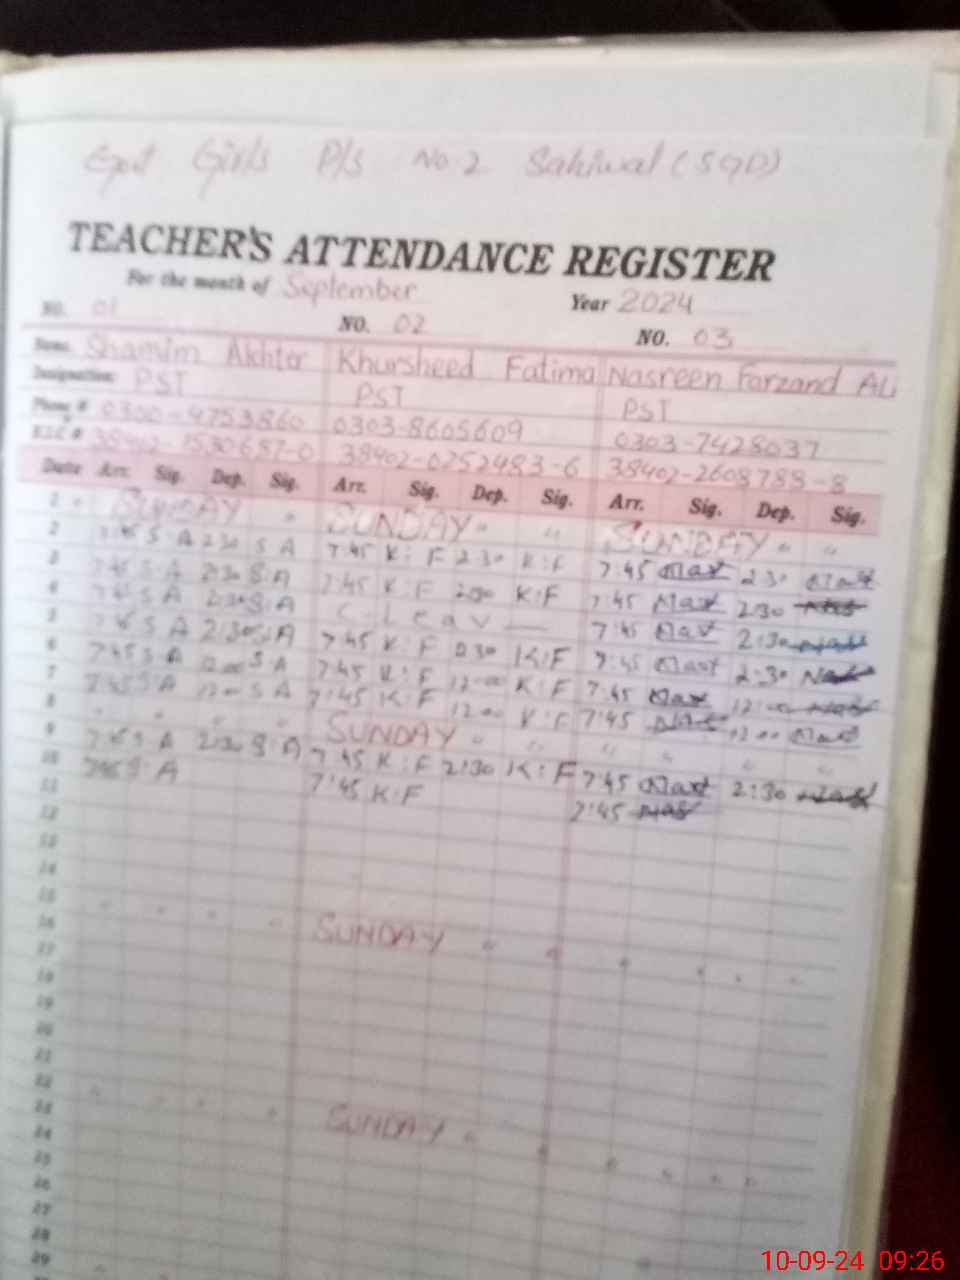 Govt Girls P/s No.2 Sahiwal (SGD)
TEACHER'S ATTENDANCE REGISTER
For the month of September Year 2024
NO. 01 NO. 02 NO. 03
Name. Shamim Akhtar Khursheed Fatima Nasreen Farzand ALi
Designation: PST PST PST
Phone # 0300-4753860 0303-8605609 0303-7428037
38402-1530657-0 38402-0252483-6 38402-2608788-8
Date Arr. Sig. Dep. Sig. Arr. Sig. Dep. Sig. Arr. Sig. Dep. Sig.
1 SUNDAY " SUNDAY " " SUNDAY " "
2 7:45 S A 2:30 S A 7:45 K:F 2:30 K:F 7:45 2:30
3 7:45 S A 2:30 S:A 7:45 K:F 2:30 K:F 7:45 2:30
4 7:45 S A 2:30 S:A C-Leav 7:45 2:30
5 7:45 S A 2:30 S:A 7:45 K:F 2:30 K:F 7:45 2:30
6 7:45 S A 12:00 S A 7:45 K:F 12:00 K:F 7:45 12:00
7 7:45 S A 12:00 S A 7:45 K:F 12:00 K:F 7:45 12:00
8 " " " " SUNDAY " " " " "
9 7:45 S A 2:30 S:A 7:45 K:F 2:30 K:F 7:45 2:30
10 7:45 S:A 7:45 K:F 7:45
11
12
13
14
15 " " " " SUNDAY " " " " " "
16
17
18
19
20
21
22 " " " " SUNDAY " " " " " "
23
24
25
26
27
28
29
10-09-24 09:26